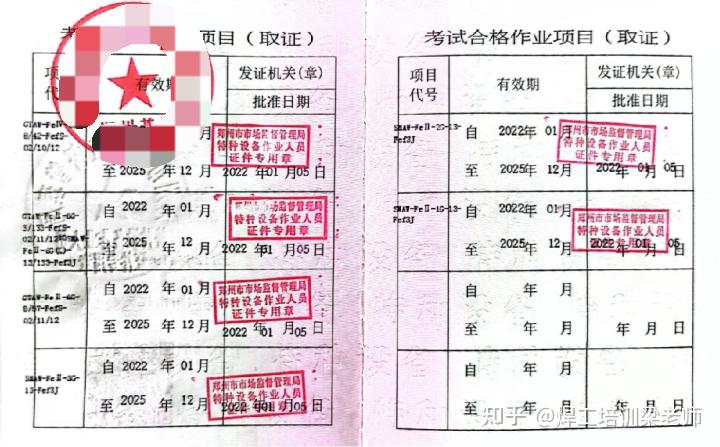 考
项目（取证）
项
代
有效期
发证机关(章)
批准日期
月
至 2025 年 12 月
2022 年 01 月 05 日
郑州市市场监督管理局
特种设备作业人员
证件专用章
02/10/12
自 2022 年 01 月
至 2025 年 12 月
2022 年 01 月 05 日
郑州市市场监督管理局
特种设备作业人员
证件专用章
13/133-Fef3J
自 2022 年 01 月
至 2025 年 12 月
2022 年 01 月 05 日
郑州市市场监督管理局
特种设备作业人员
证件专用章
02/11/12
自 2022 年 01 月
至 2025 年 12 月
2022 年 01 月 05 日
郑州市市场监督管理局
特种设备作业人员
证件专用章
SMAW-FeⅡ-3G-
13-Fef3J
考试合格作业项目（取证）
项目
代号
有效期
发证机关(章)
批准日期
SMAW-FeⅡ-2G-13-
Fef3J
自 2022 年 01 月
至 2025 年 12 月
2022 年 01 月 05 日
郑州市市场监督管理局
特种设备作业人员
证件专用章
SMAW-FeⅡ-1G-13-
Fef3J
自 2022 年 01 月
至 2025 年 12 月
2022 年 01 月 05 日
郑州市市场监督管理局
特种设备作业人员
自 年 月
至 年 月
年 月 日
自 年 月
至 年 月
年 月 日
知乎 @焊工培训梁老师